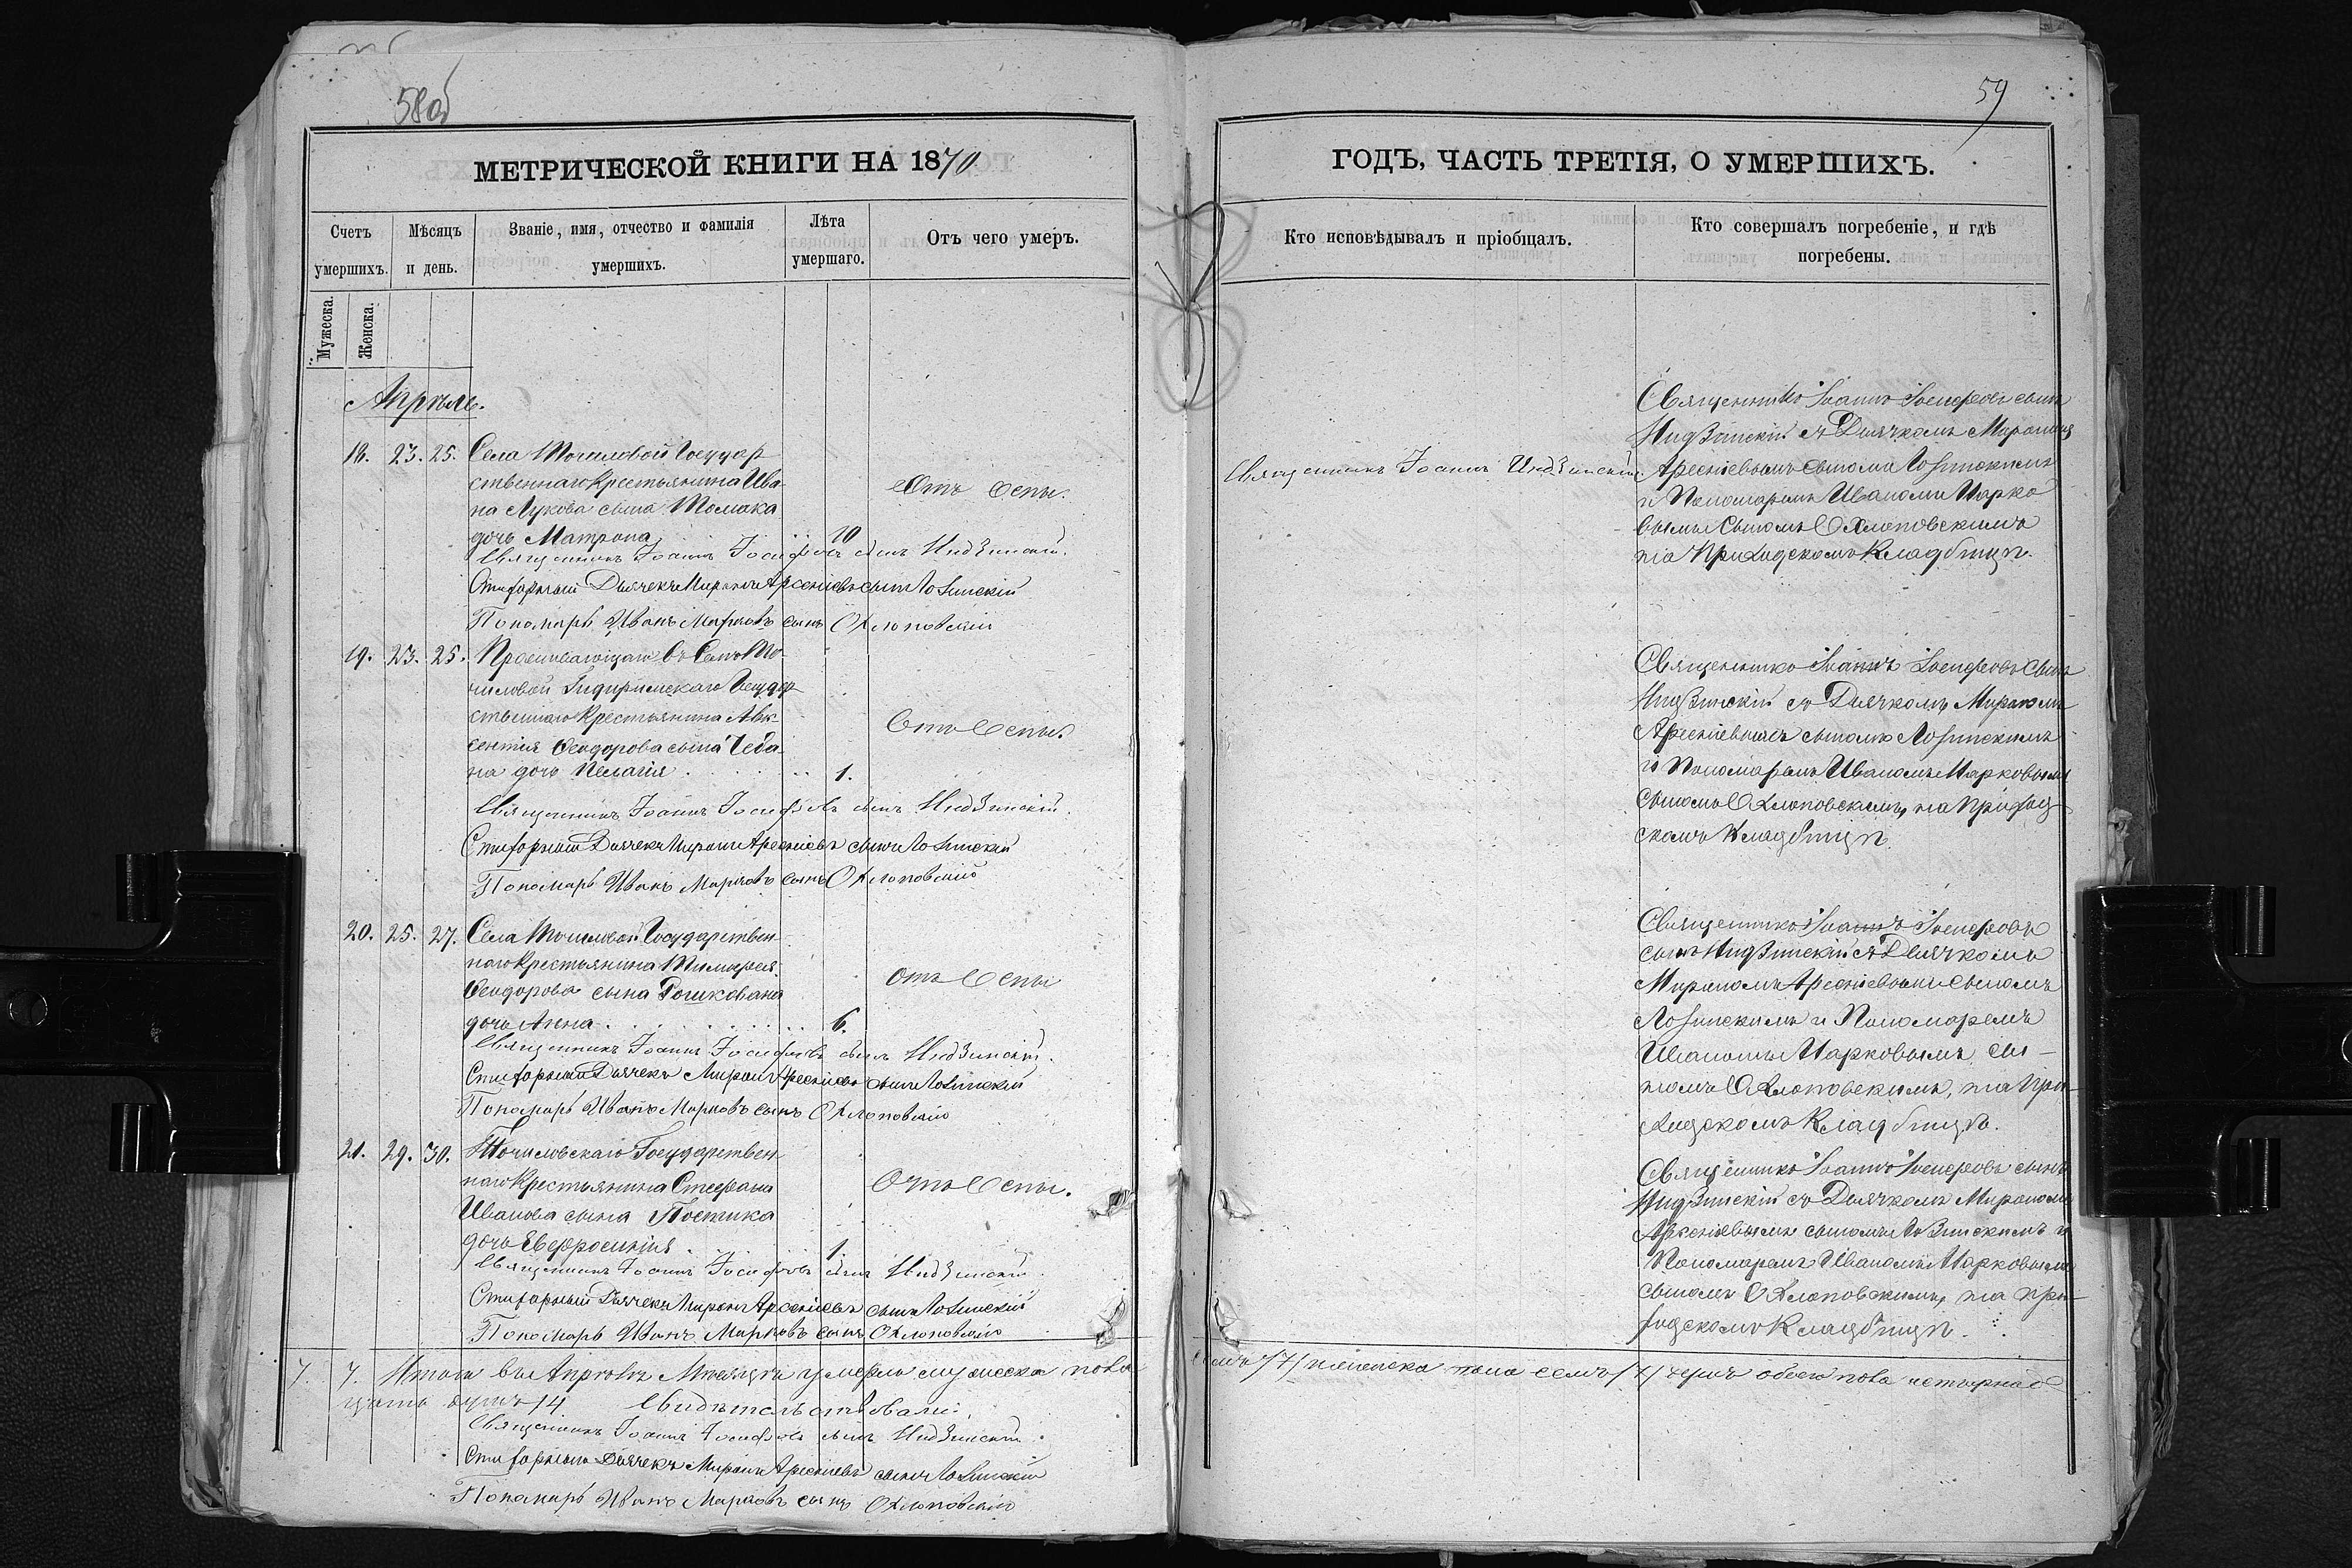 58об
МЕТРИЧЕСКОЙ КНИГИ НА 1870
Счетъ умершихъ.
Мѣсяцъ и день.
Званіе, имя, отчество и фамилія умершихъ.
Лѣта умершаго.
Отъ чего умеръ.
Мужеска.
Женска.
Апрѣль.
18. 23. 25. Села Точиловой Государ
ственнаго Крестьянина Ива
на Лукова сына Томака
дочь Матрона 10
Отъ Оспы.
Священникъ Іоаннъ Іосифовъ сынъ Индзинскій.
Стихарный Дьячекъ Миронъ Арсеніевъ сынъ Лозинскій
Пономарь Иванъ Марковъ сынъ Охлоповскій
19. 23. 25. Проживающаго въ Селѣ То
чиловой Государ
ственнаго Крестьянина Авк
сентія Ѳеодорова сына Чеба
на дочь Пелагія 1.
Отъ Оспы.
Священникъ Іоаннъ Іосифовъ сынъ Индзинскій.
Стихарный Дьячекъ Миронъ Арсеніевъ сынъ Лозинскій
Пономарь Иванъ Марковъ сынъ Охлоповскій
20. 25. 27. Села Точиловой Государствен
наго Крестьянина Тимофея
Ѳеодорова сына Рошкована
дочь Анна 6.
Отъ Оспы
Священникъ Іоаннъ Іосифовъ сынъ Индзинскій.
Стихарный Дьячекъ Миронъ Арсеніевъ сынъ Лозинскій
Пономарь Иванъ Марковъ сынъ Охлоповскій
21. 29. 30. Точиловскаго Государствен
наго Крестьянина Стефана
Иванова сына Постика
дочь Евфросинія 1.
Отъ Оспы.
Священникъ Іоаннъ Іосифовъ сынъ Индзинскій
Стихарный Дьячекъ Миронъ Арсеніевъ сынъ Лозинскій
Пономарь Иванъ Марковъ сынъ Охлоповскій
7. 7. Итого въ Апрѣлѣ Мѣсяцѣ умерло мужеска пола
цать душъ 14 Свидѣтельствовали:
Священникъ Іоаннъ Іосифовъ сынъ Индзинскій
Стихарный Дьячекъ Миронъ Арсеніевъ сынъ Лозинскій
Пономарь Иванъ Марковъ сынъ Охлоповскій
59
ГОДЪ, ЧАСТЬ ТРЕТІЯ, О УМЕРШИХЪ.
Кто исповѣдывалъ и пріобщалъ.
Кто совершалъ погребеніе, и гдѣ погребены.
Священникъ Іоаннъ Индзинскій
Священникъ Іоаннъ Іосифовъ сынъ
Индзинскій съ Дьячкомъ Мирономъ
Арсеніевымъ сыномъ Лозинскимъ
и Пономаремъ Иваномъ Марко
вымъ Сыномъ Охлоповскимъ
на Приходскомъ Кладбищѣ.
Священникъ Іоаннъ Іосифовъ Сынъ
Индзинскій съ Дьячкомъ Мирономъ
Арсеніевымъ сыномъ Лозинскимъ
и Пономаремъ Иваномъ Марковымъ
Сыномъ Охлоповскимъ, на Приход
скомъ Кладбищѣ.
Священникъ Іоаннъ Іосифовъ
сынъ Индзинскій съ Дьячкомъ
Мирономъ Арсеніевымъ Сыномъ
Лозинскимъ и Пономаремъ
Иваномъ Марковымъ Сы-
номъ Охлоповскимъ, на При
ходскомъ Кладбищѣ.
Священникъ Іоаннъ Іосифовъ сынъ
Индзинскій съ Дьячкомъ Мирономъ
Арсеніевымъ сыномъ Лозинскимъ и
Пономаремъ Иваномъ Марковымъ
Сыномъ Охлоповскимъ, на При
ходскомъ Кладбищѣ.
семь /7/ женска пола семь /7/ душъ обоего пола четырнад